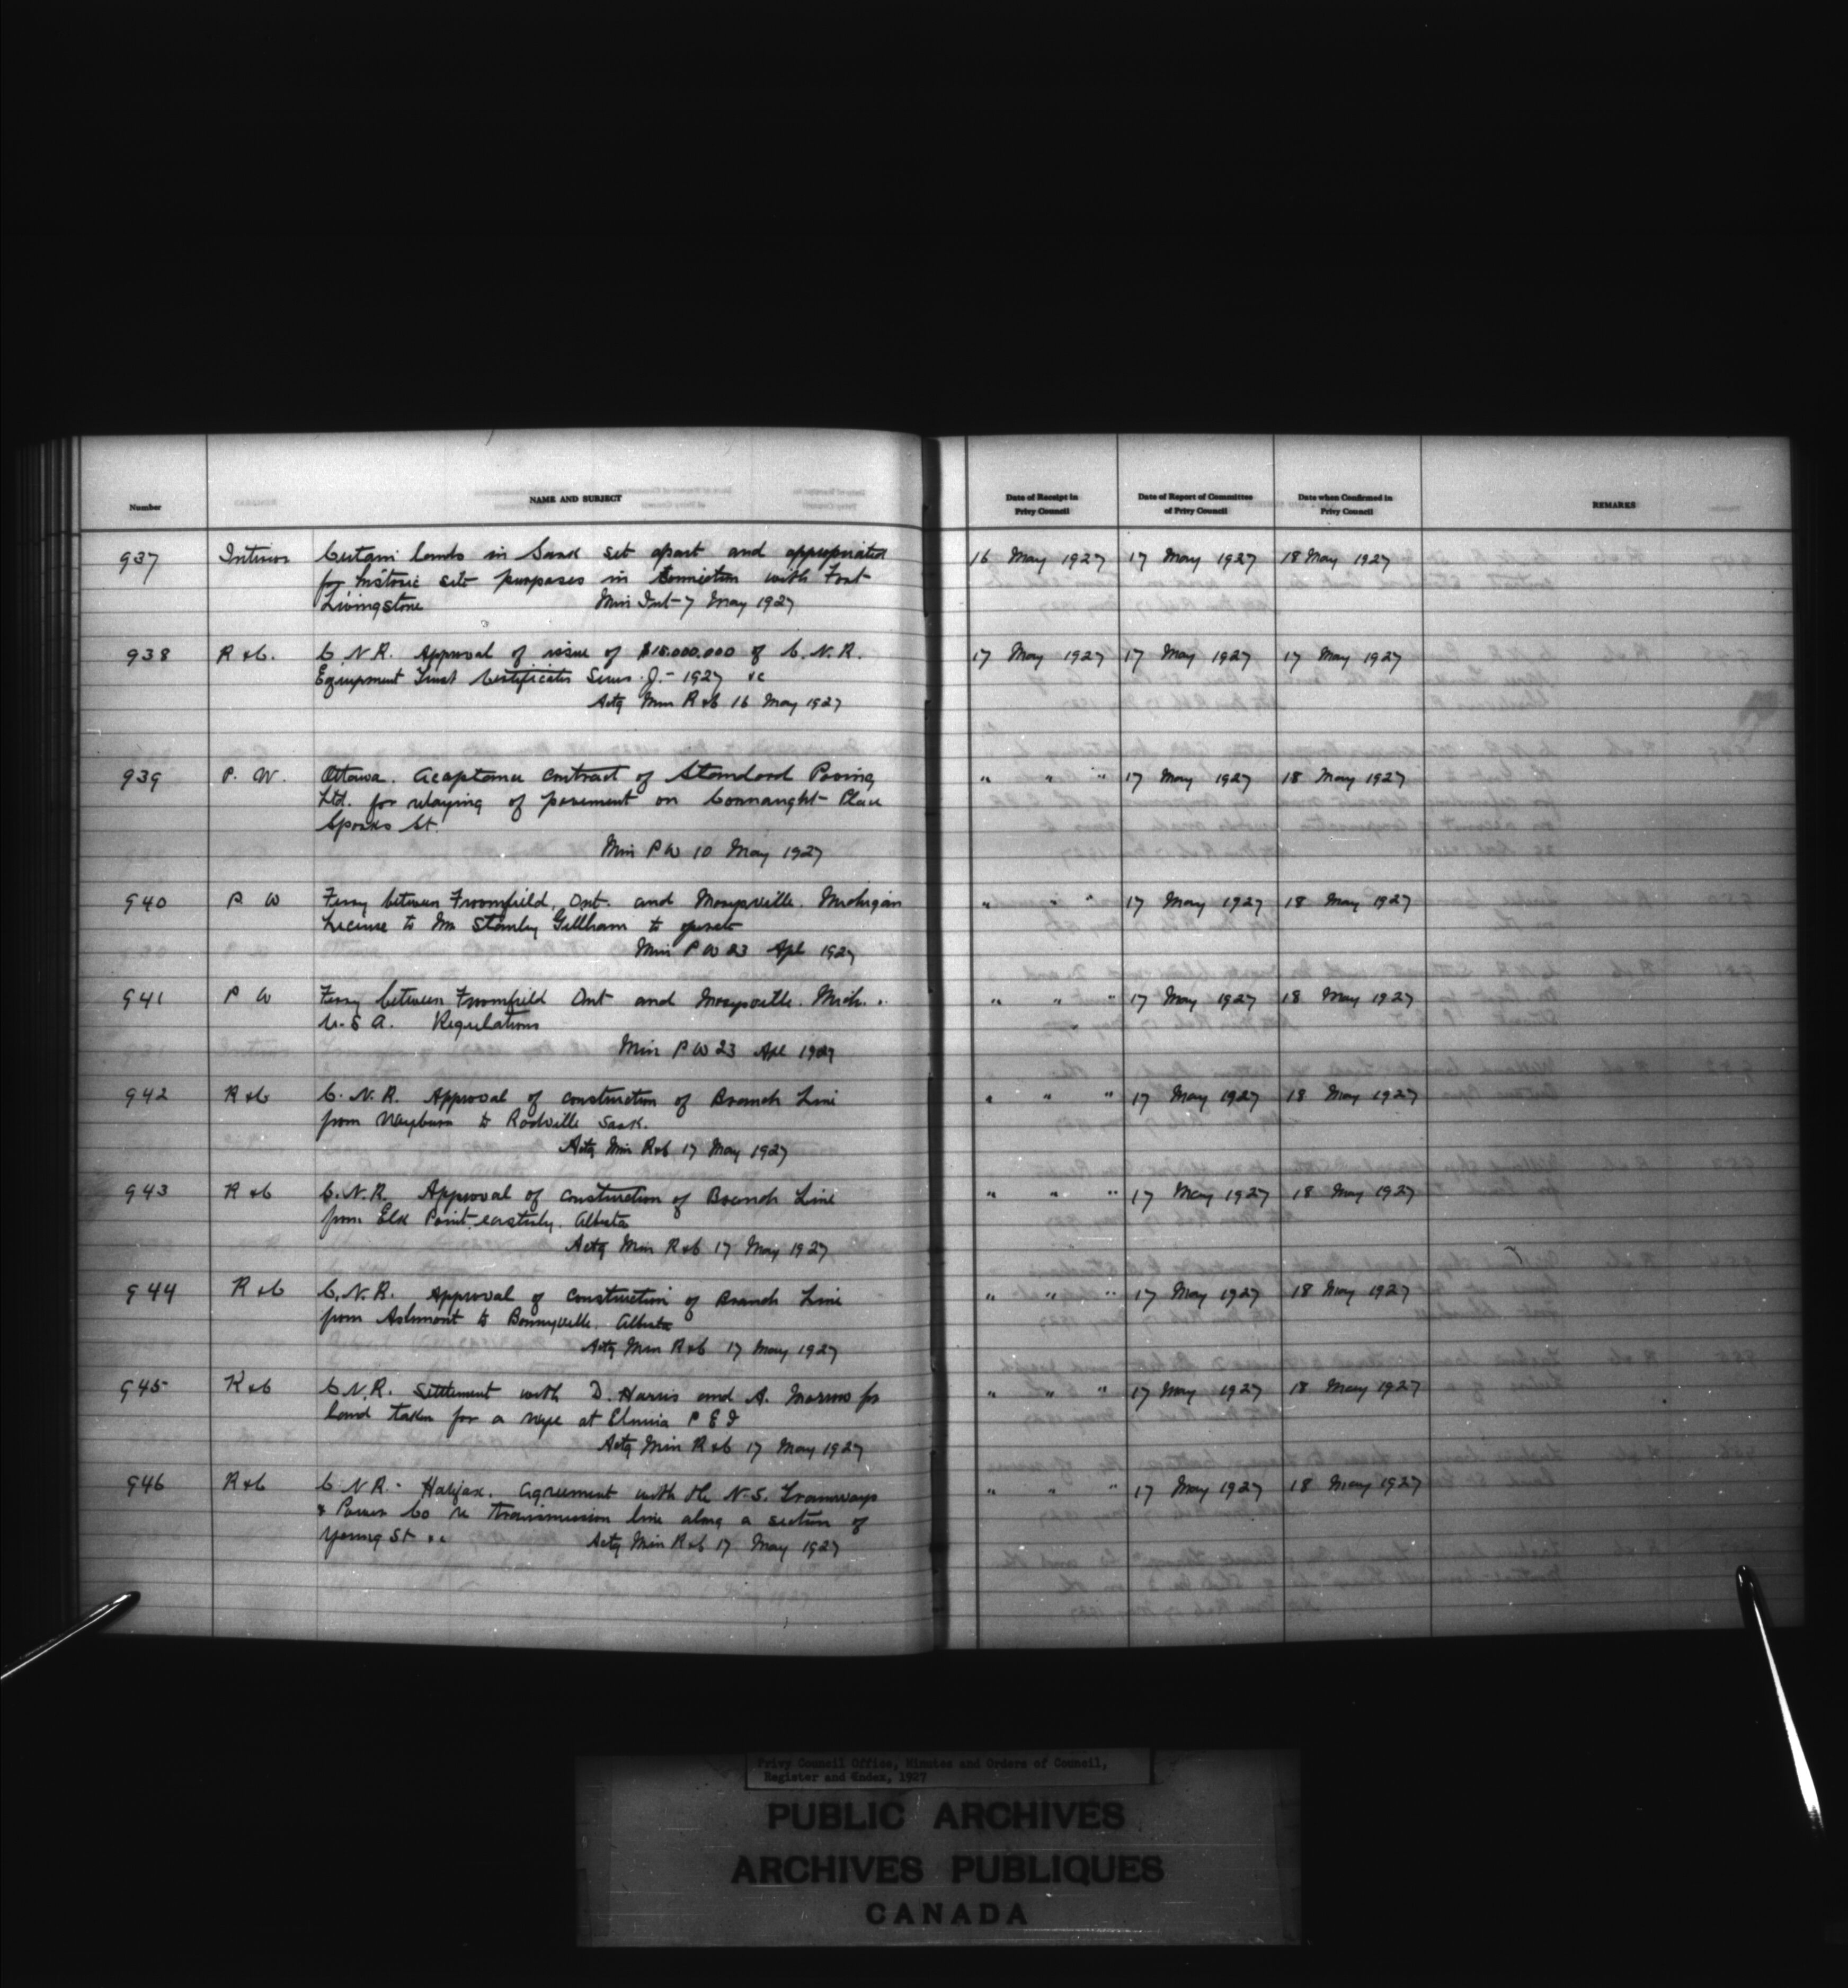 Number NAME AND SUBJECT Date of Receipt in Privy Council Date of Report of Committee of Privy Council Date when Confirmed in Privy Council REMARKS
937 Interior Certain lands in Sask set apart and appropriated 16 May 1927 17 May 1927 18 May 1927
for historic site purposes in connection with Fort
Livingstone Min Int 7 May 1927
938 R & C. C.N.R. Approval of issue of $15.000.000 of C.N.R. 17 May 1927 17 May 1927 17 May 1927
Equipment Trust Certificates Series J. - 1927 &c
Actg Min R & C 16 May 1927
939 P. W. Ottawa. Acceptance contract of Standard Paving " " " 17 May 1927 18 May 1927
Ltd. for relaying of pavement on Connaught Place
Sparks St.
Min P W 10 May 1927
940 P W Ferry between Froomfield, Ont. and Marysville. Michigan " " " 17 May 1927 18 May 1927
License to Mr Stanley Gillham to operate
Min P W 23 Apl 1927
941 P W Ferry between Froomfield Ont and Marysville. Mich. " " " 17 May 1927 18 May 1927
U.S A. Regulations
Min P W 23 Apl 1927
942 R & C C. N. R. Approval of construction of Branch Line " " " 17 May 1927 18 May 1927
from Weyburn to Radville Sask.
Actg Min R & C 17 May 1927
943 R & C C.N.R. Approval of construction of Branch Line " " " 17 May 1927 18 May 1927
from Elk Point easterly. Alberta
Actg Min R & C 17 May 1927
944 R & C C.N.R. Approval of construction of Branch Line " " " 17 May 1927 18 May 1927
from Ashmont to Bonnyville. Alberta
Actg Min R & C 17 May 1927
945 R & C C.N.R. Settlement with D. Harris and A. for " " " 17 May 1927 18 May 1927
land taken for a wye at Elmira P E I
Actg Min R & C 17 May 1927
946 R & C C.N.R. - Halifax. Agreement with the N.S. Tramways " " " 17 May 1927 18 May 1927
& Power Co re transmission line along a section of
Young St &c Actg Min R & C 17 May 1927
Privy Council Office, Minutes and Orders of Council,
Register and Index, 1927
PUBLIC ARCHIVES
ARCHIVES PUBLIQUES
CANADA